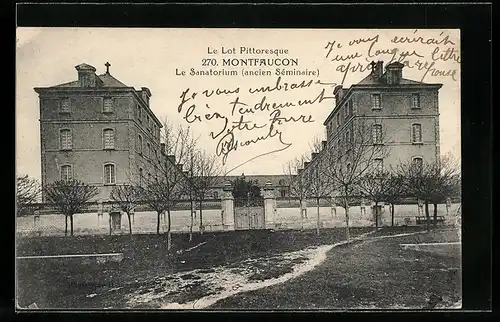 Le Lot Pittoresque
270. MONTFAUCON
Le Sanatorium (ancien Séminaire)
Je vous ecrirait
une longue lettre
après
Je vous embrasse
bien tendrement
Votre